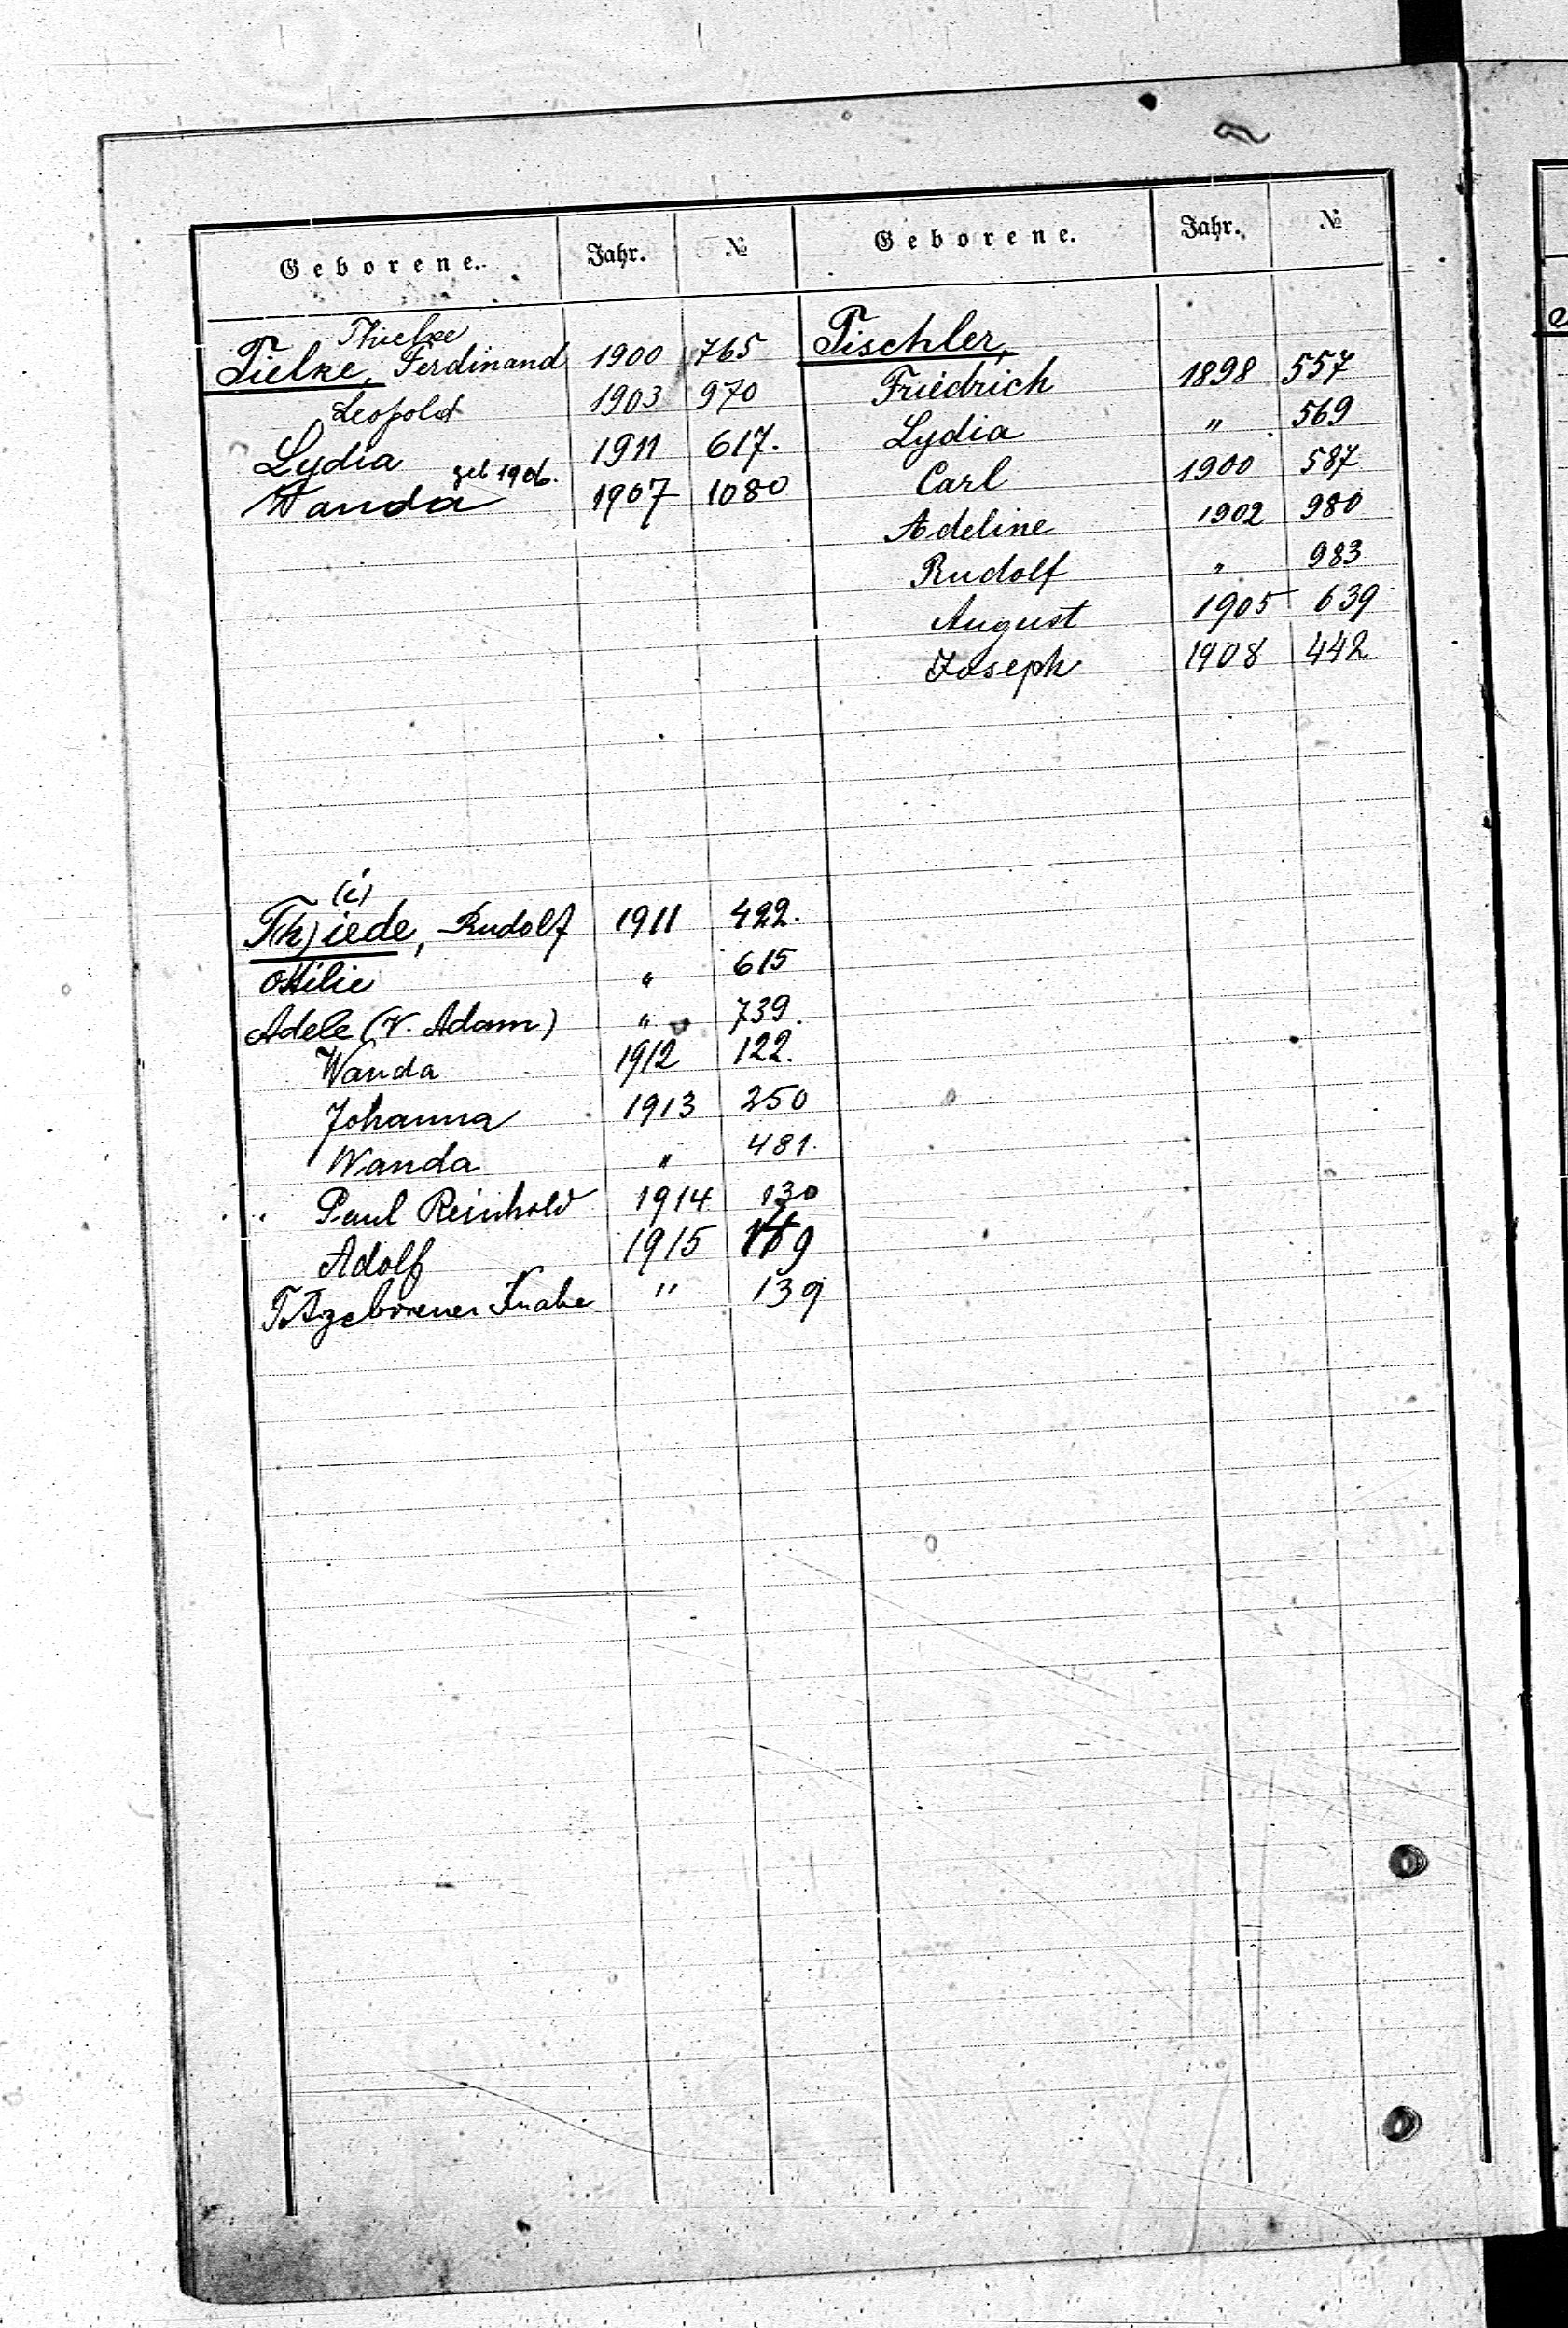 Geborene. Jahr. №
Thielke
Tielke, Ferdinand 1900 765
Leopold 1903 970
Lydia 1911 617.
geb 1906.
Wanda 1907 1080
(i)
T(h)iede, Rudolf 1911 422.
Ottilie " 615
Adele (V. Adam) " 739.
Wanda 1912 122.
Johanna 1913 250
Wanda " 481.
Paul Reinhold 1914 130
Adolf 1915
Totgeborener Knabe " 139
Geborene. Jahr. №
Tischler,
Friedrich 1898 557
Lydia " 569
Carl 1900 587
Adeline 1902 980
Rudolf " 983
August 1905 639
Joseph 1908 442